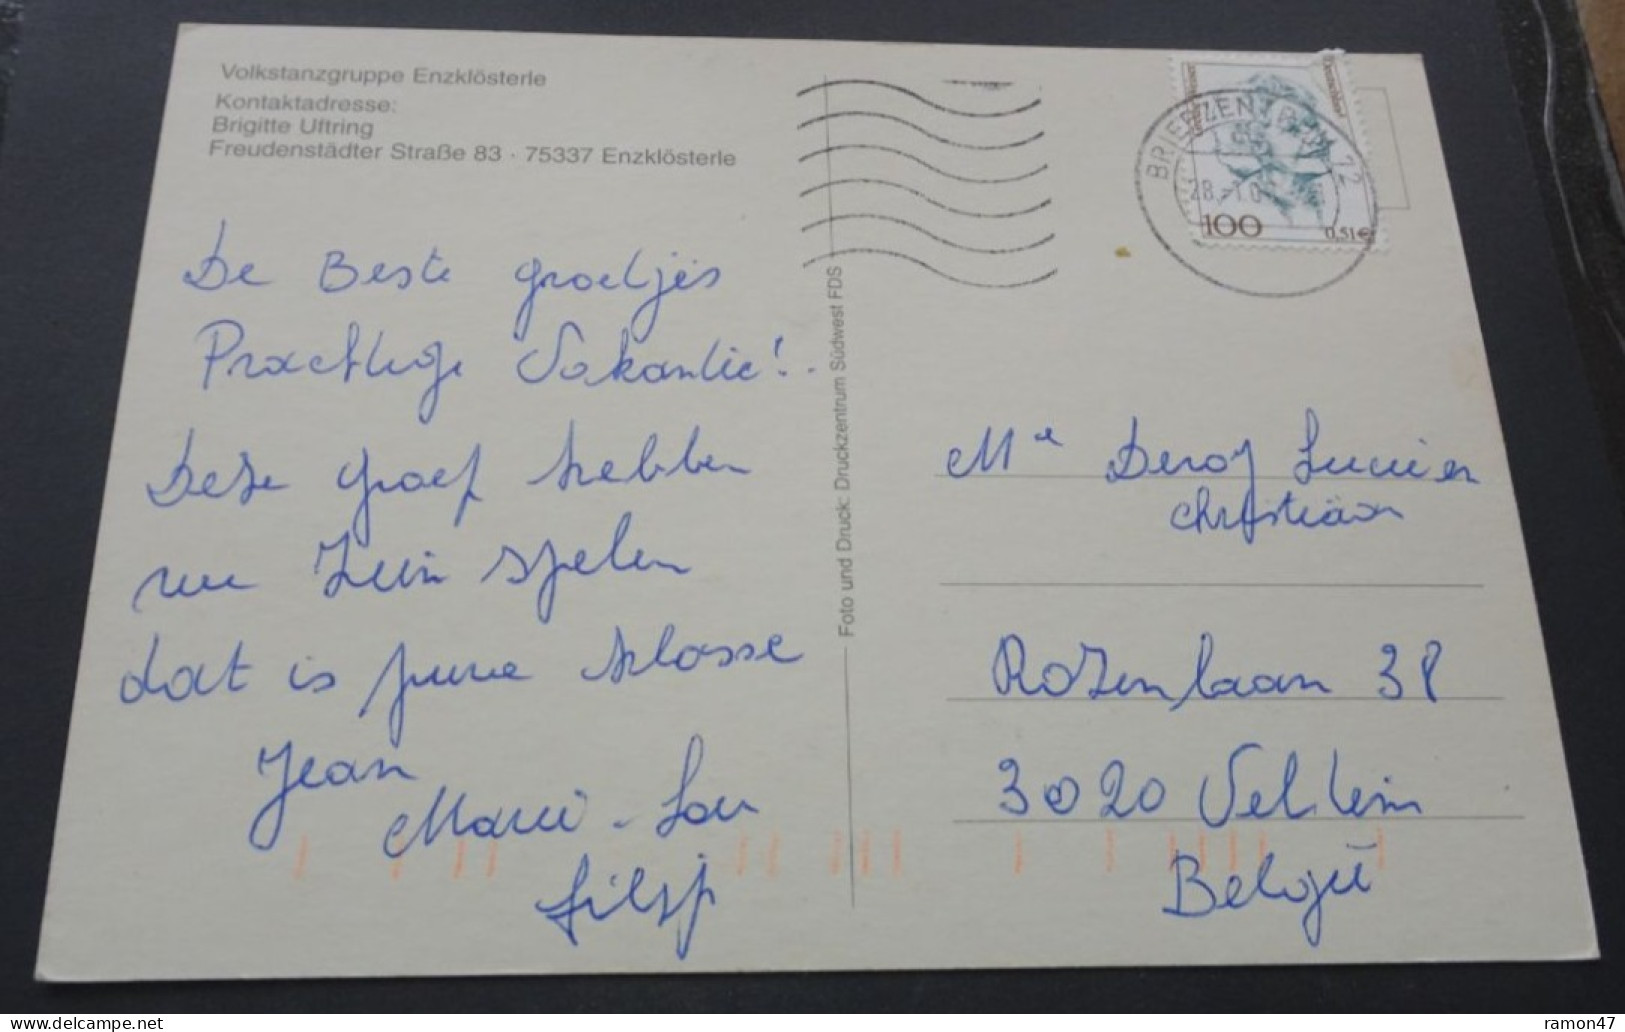 Volkstanzgruppe Enzklösterle
Kontaktadresse:
Brigitte Uftring
Freudenstädter Straße 83 · 75337 Enzklösterle
De Beste groetjes
Prachtige Vakantie!..
Deze groep hebben
we zien spelen
dat is pure klasse
Jean
Marie-Lou
Filip
Foto und Druck: Druckzentrum Südwest FDS
BRIEFZENTRUM 72
28.-1.0
100
0,51€
Deutschland
Deroy Lucien
Christian
Rozenlaan 38
3020 Veltem
België
ramon47